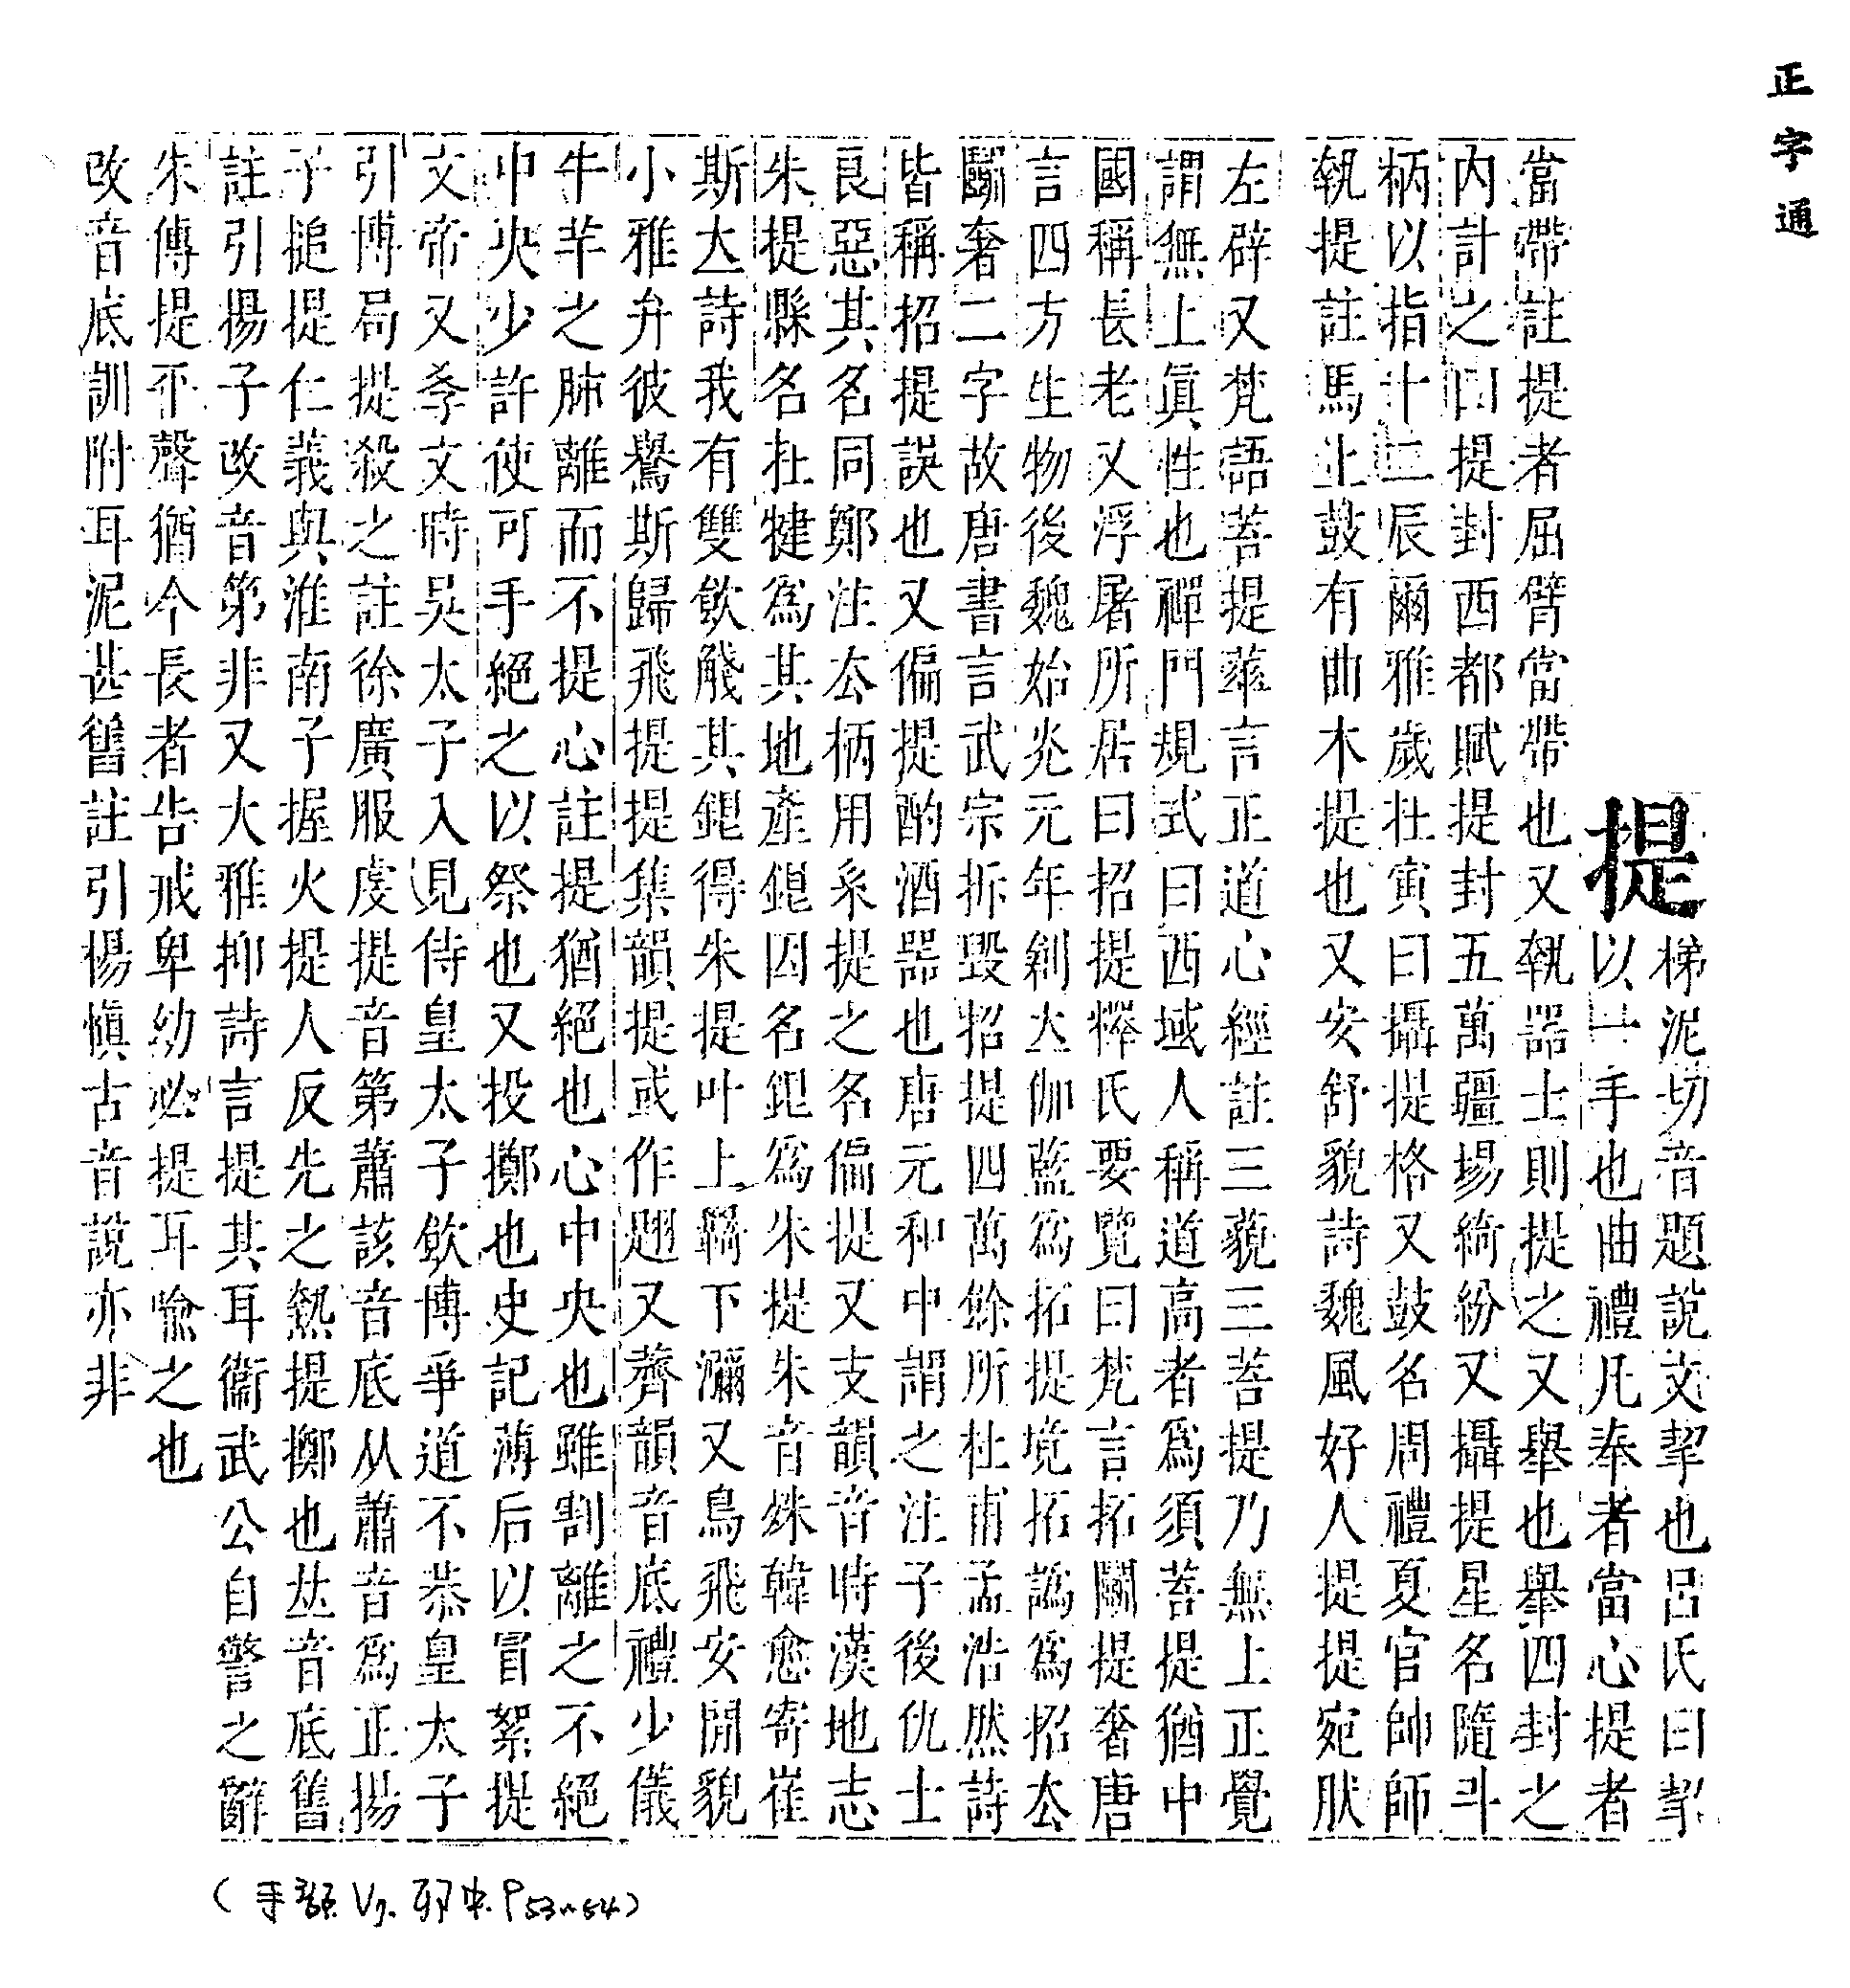 正字通
提
梯泥切音題說文挈也呂氏曰挈
以一手也曲禮凡奉者當心提者
當帶註提者屈臂當帶也又執器士則提之又舉也舉四封之
內計之曰提封西都賦提封五萬疆場綺紛又攝提星名隨斗
柄以指十二辰爾雅歲在寅曰攝提格又鼓名周禮夏官帥師
執提註馬上鼓有曲木提也又安舒貌詩魏風好人提提宛肰
左辟又梵語菩提華言正道心經註三藐三菩提乃無上正覺
謂無上眞性也禪門規式曰西域人稱道高者爲須菩提猶中
國稱長老又浮屠所居曰招提釋氏要覽曰梵言拓鬬提奢唐
言四方生物後魏始光元年剏大伽藍爲拓提境拓譌爲招去
鬬奢二字故唐書言武宗拆毀招提四萬餘所杜甫孟浩然詩
皆稱招提誤也又偏提酌酒器也唐元和中謂之注子後仇士
良惡其名同鄭注去柄用系提之名偏提又支韻音時漢地志
朱提縣名在犍爲其地產鋧因名鋧爲朱提朱音姝韓愈寄崔
斯立詩我有雙飮醆其鋧得朱提叶上觴下瀰又鳥飛安閒貌
小雅弁彼鸒斯歸飛提提集韻提或作翅又薺韻音底禮少儀
牛羊之肺離而不提心註提猶絕也心中央也雖割離之不絕
中央少許使可手絕之以祭也又投擲也史記薄后以冒絮提
文帝又孝文時吳太子入見侍皇太子飮博爭道不恭皇太子
引博局提殺之註徐廣服虔提音第蕭該音底从蕭音爲正揚
子搥提仁義與淮南子握火提人反先之熱提擲也𠀤音底舊
註引揚子攺音第非又大雅抑詩言提其耳衞武公自警之辭
朱傳提平聲猶今長者告戒卑幼必提耳喩之也
攺音底訓附耳泥甚舊註引楊愼古音說亦非
(手部 V7. 卯中. P53~54)